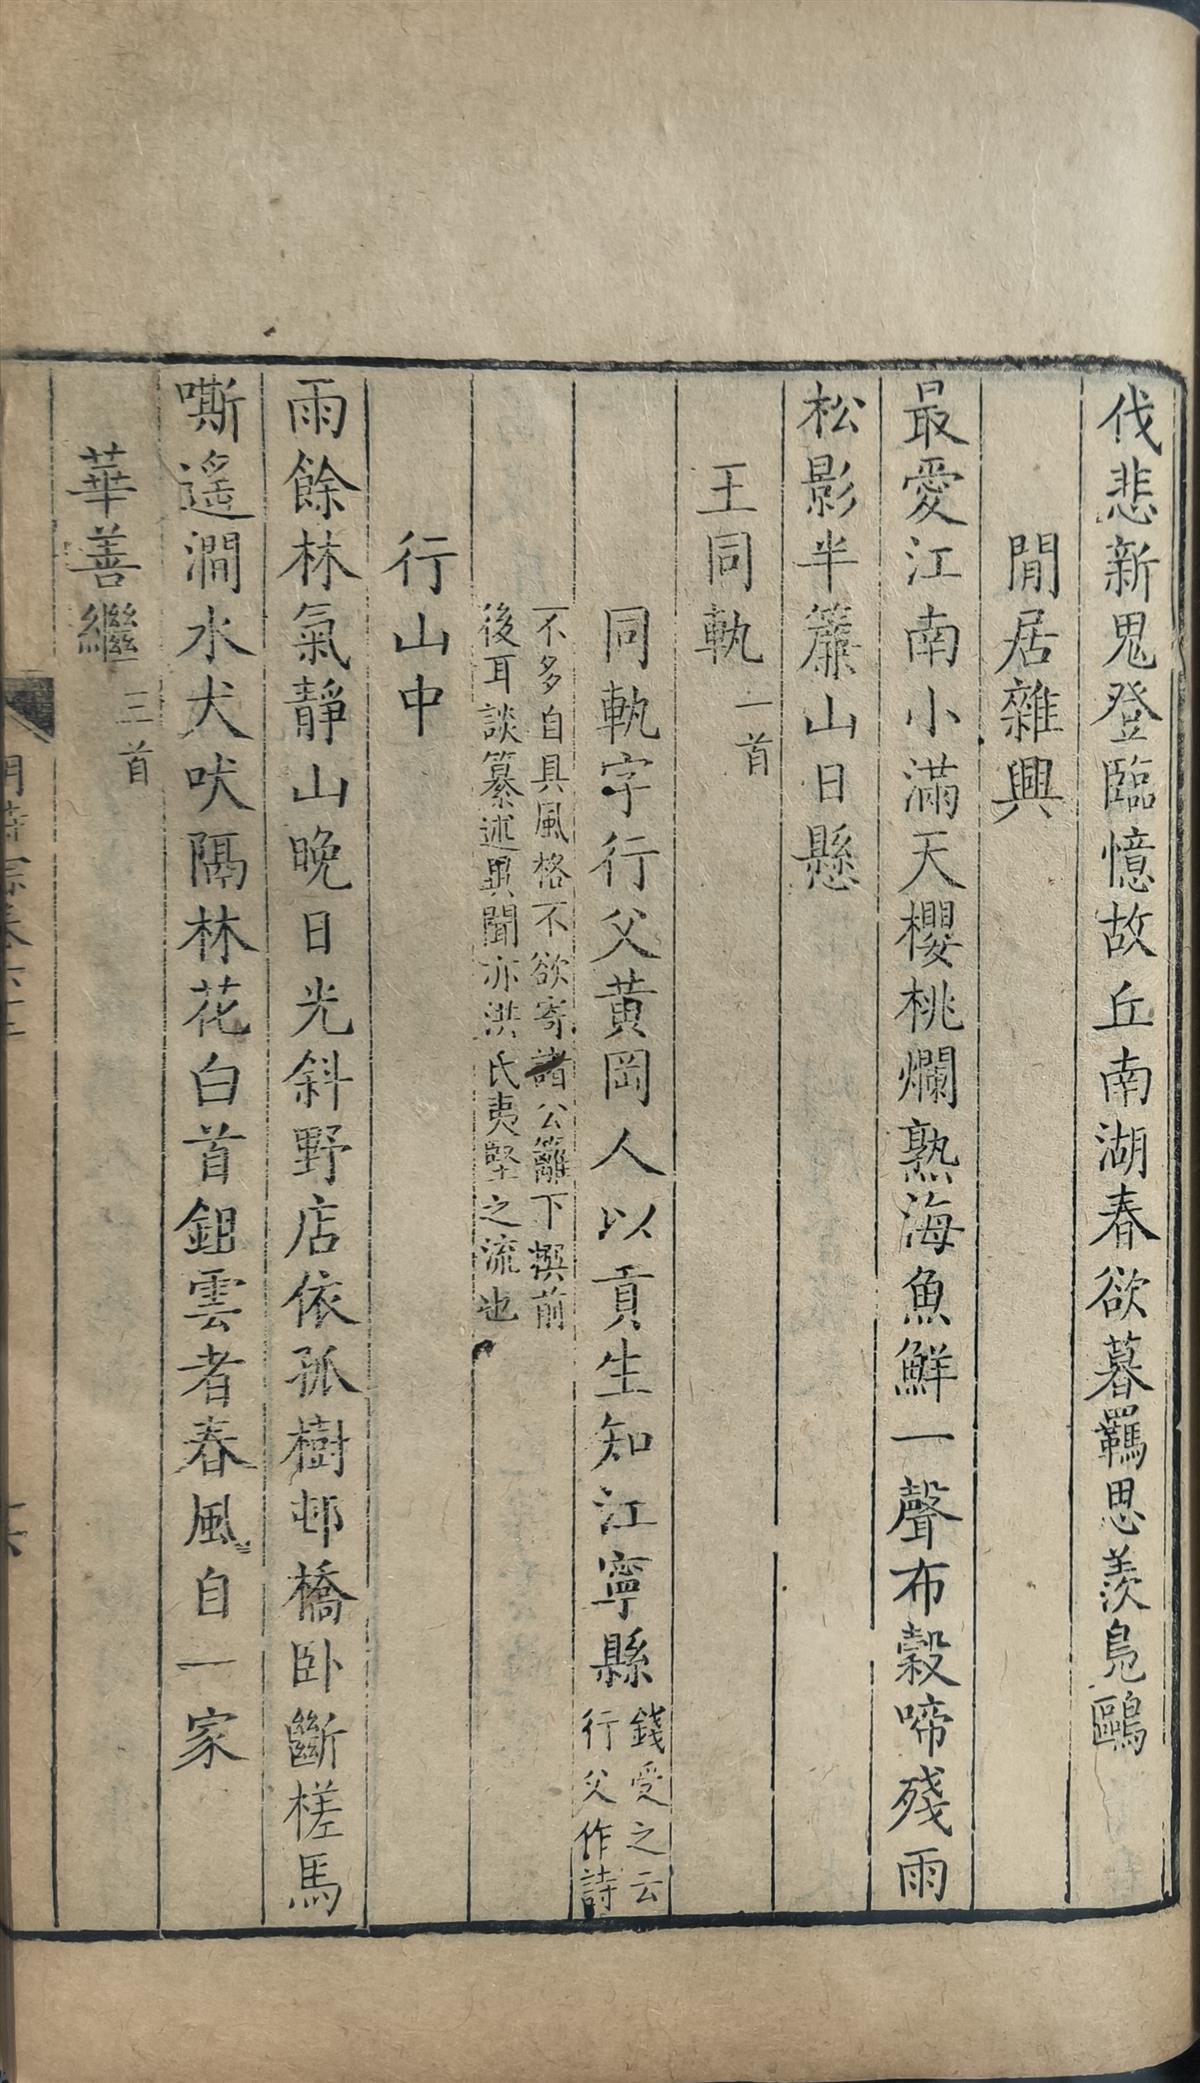 伐悲新鬼登臨憶故丘南湖春欲暮羈思羨鳧鷗
閒居雜興
最愛江南小滿天櫻桃爛熟海魚鮮一聲布穀啼殘雨
松影半簾山日懸
王同軌 一首
同軌字行父黃岡人以貢生知江寧縣 錢受之云
行父作詩
不多自具風格不欲寄諸公籬下撰前
後耳談纂述異聞亦洪氏夷堅之流也
行山中
雨餘林氣靜山晚日光斜野店依孤樹邨橋臥斷槎馬
嘶遙澗水犬吠隔林花白首鉏雲者春風自一家
華善繼 三首